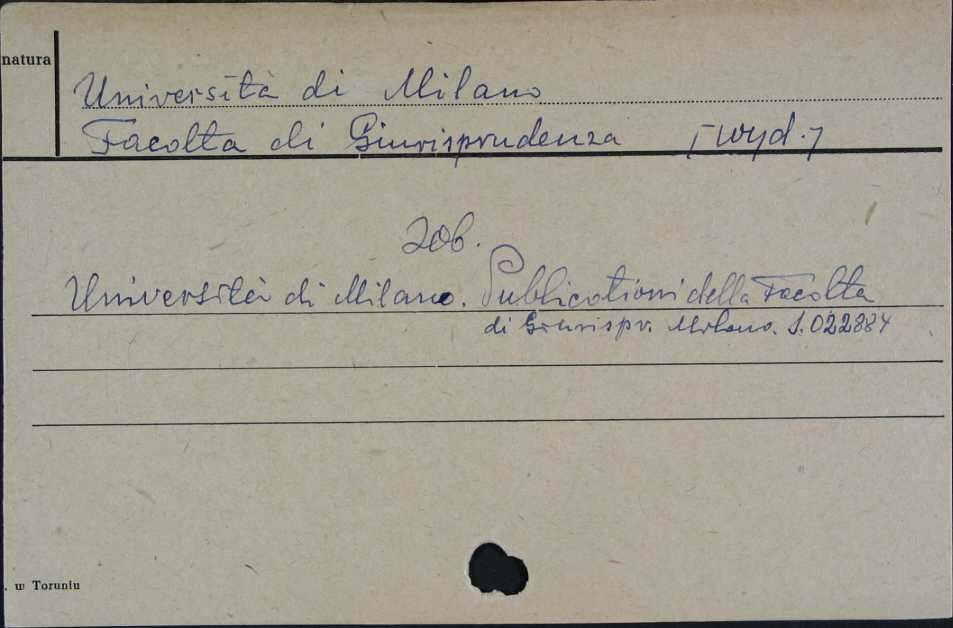 natura
Università di Milano
Facolta di Giurisprudenza [wyd.]
Zob.
Università di Milano. Publicationi della Facolta
di Giurispr. Milano. S.022884
. w Toruniu